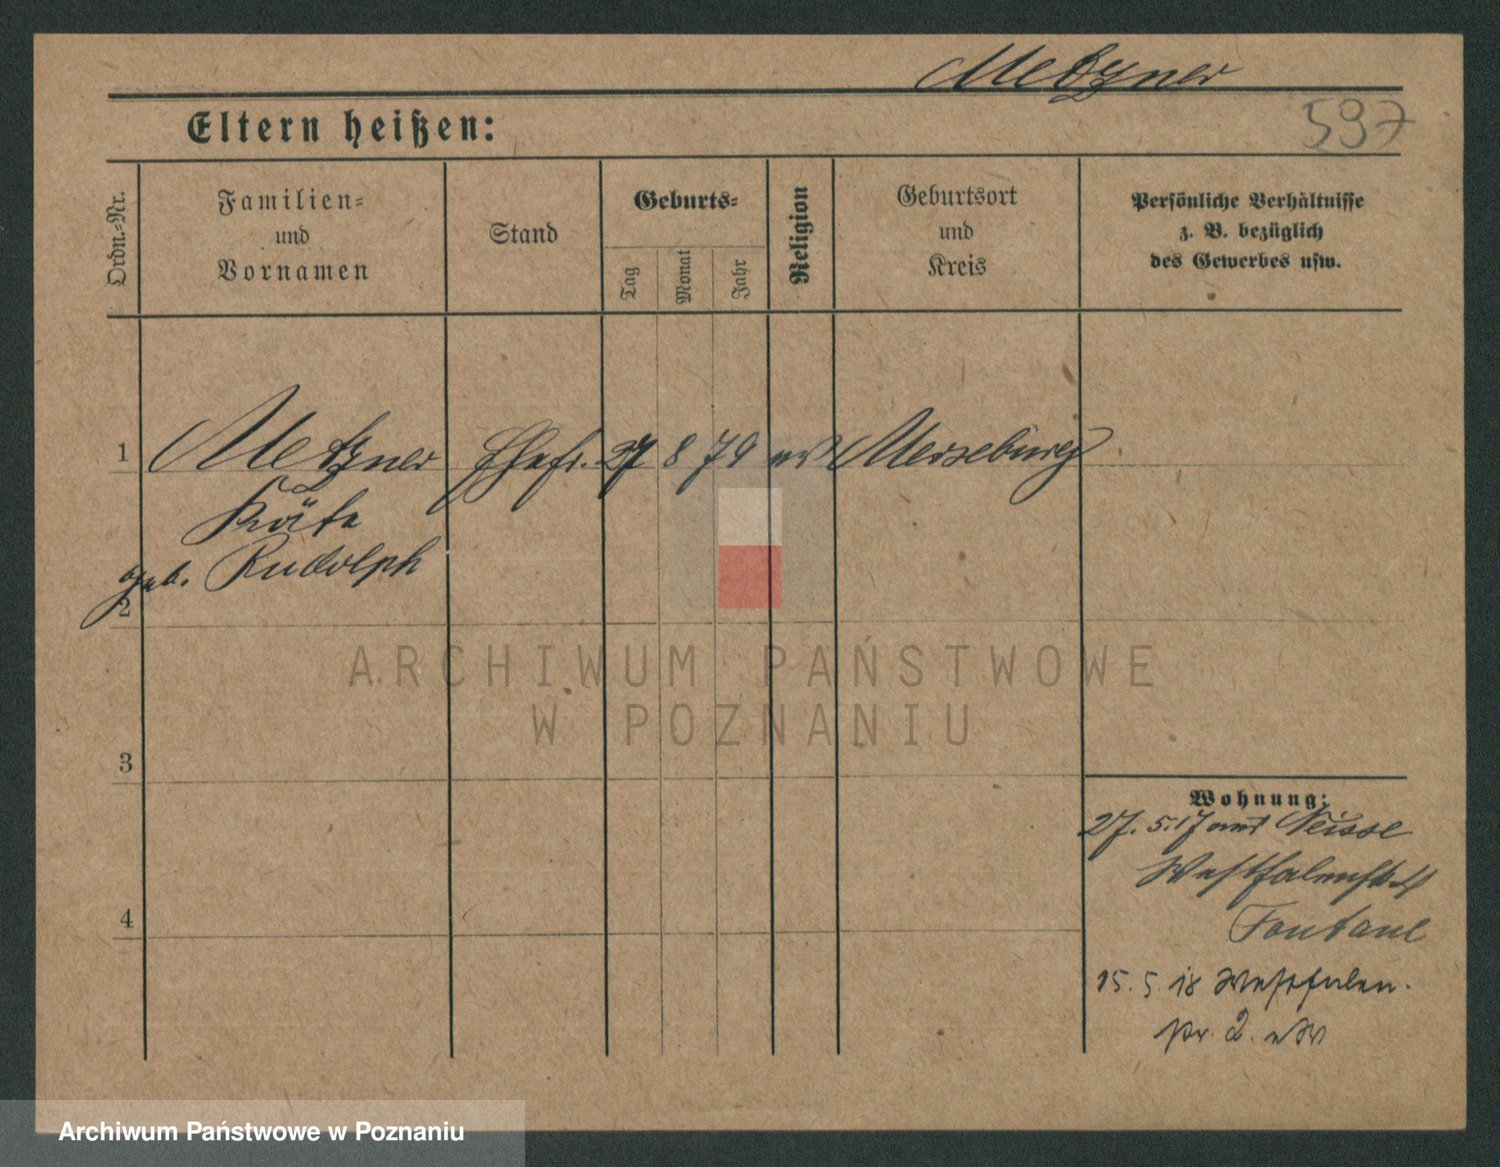 Metzner
597
Eltern heißen:
Ordn.-Nr.
Familien-
und
Vornamen
Stand
Geburts-
Tag
Monat
Jahr
Religion
Geburtsort
und
Kreis
Persönliche Verhältnisse
z. B. bezüglich
des Gewerbes usw.
1 Metzner Ehefr. 27 8 79 ev Merseburg
Käte
geb. Rudolph
2
ARCHIWUM PAŃSTWOWE
W POZNANIU
3
4
Wohnung:
27. 5. 17 aus Neisse
Fontane
15. 5. 18 Westfalen.
Archiwum Państwowe w Poznaniu